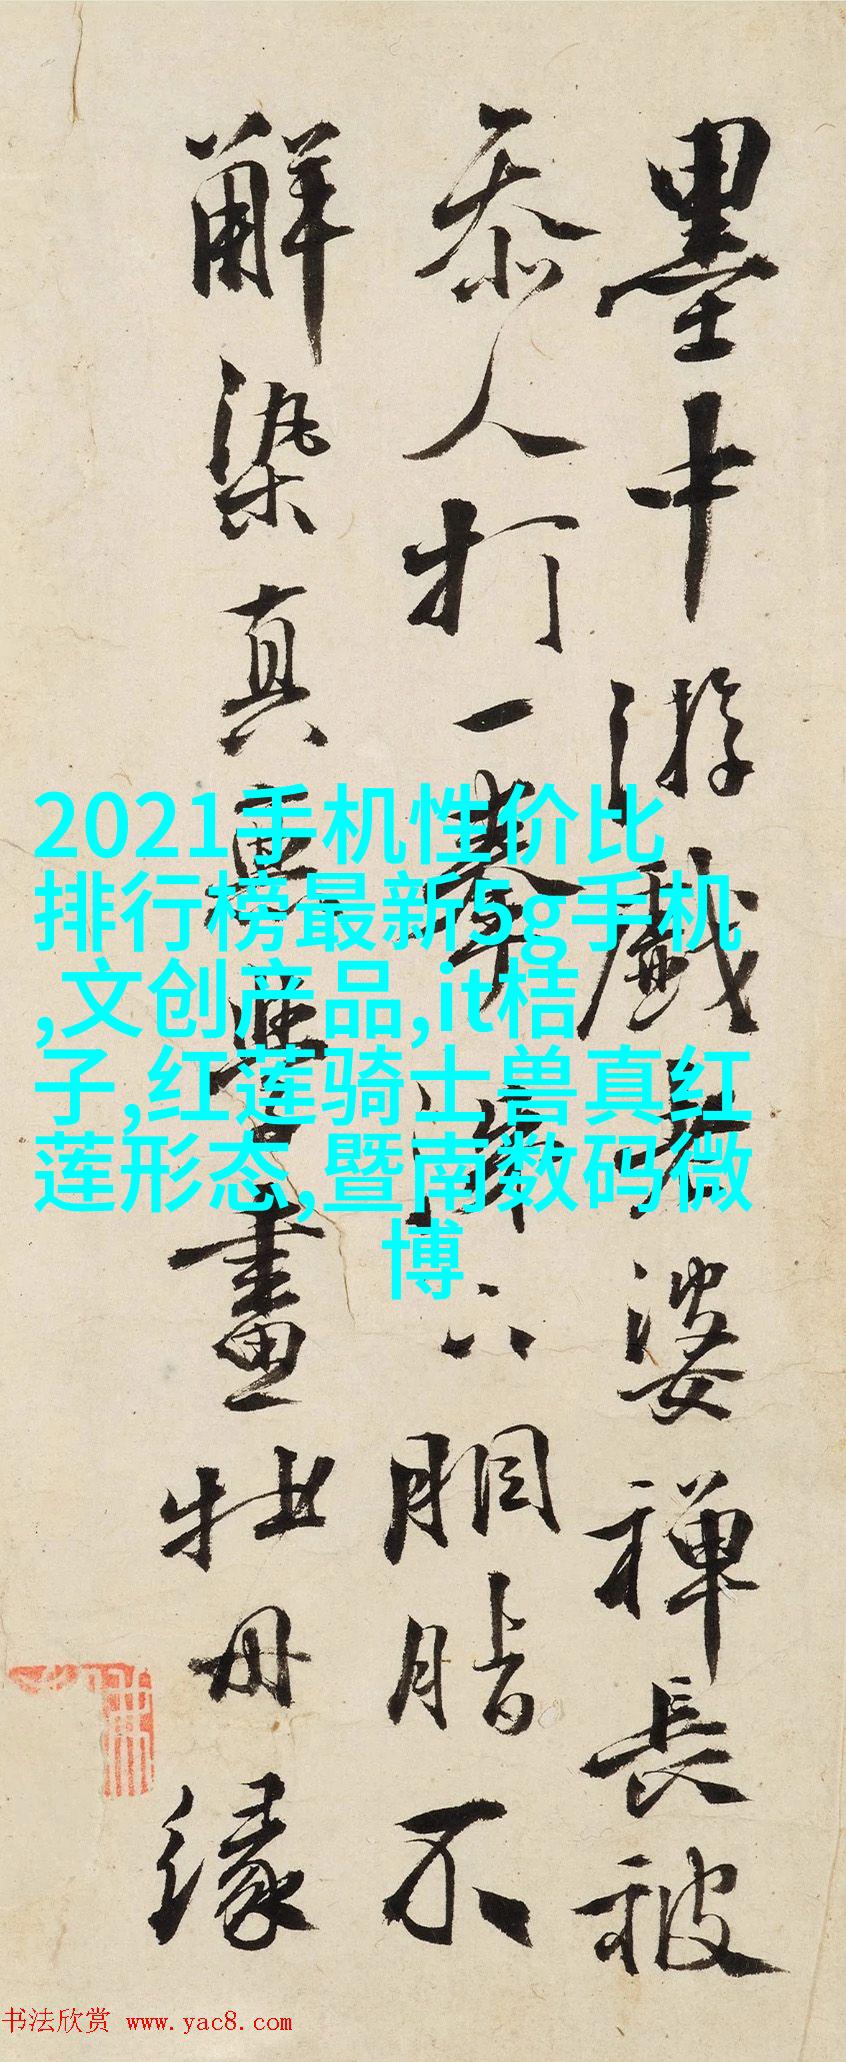 墨中游戲老婆禪長被
參人打一拳涕下胭脂不
解染真無學畫牡丹緣
2021手机性价比
排行榜最新5g手机
,文创产品,it桔
子,红莲骑士兽真红
莲形态,暨南数码微
博
书法欣赏 www.yac8.com